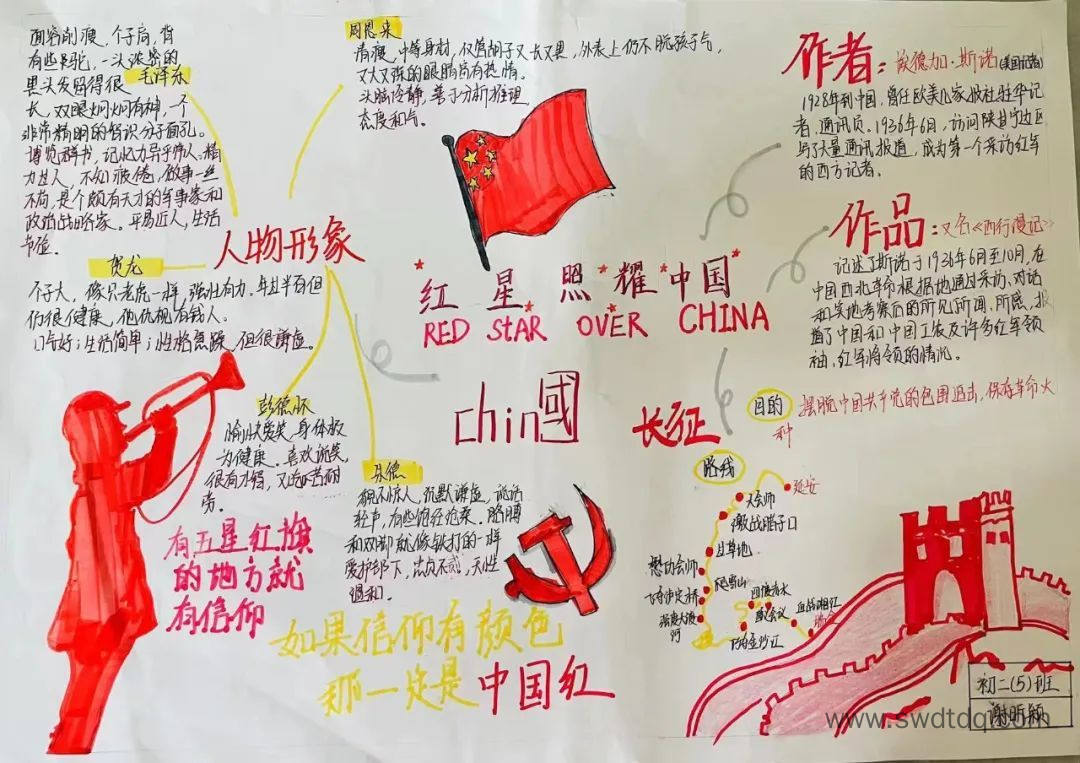 面容削瘦，个子高，背
有些驼，一头浓密的
黑头发留得很
毛泽东
长，双眼炯炯有神，一个
非常精明的知识分子面孔。
博览群书，记忆力异于常人，精
力过人，不知疲倦，做事一丝
不苟，是个颇有天才的军事家和
政治战略家。平易近人，生活
节俭。
周恩来
清瘦，中等身材，仅管胡子又长又黑，外表上仍不脱孩子气，
又大又深的眼睛富有热情。
头脑冷静，善于分析推理
态度和气。
作者：埃德加·斯诺(美国记者)
1928年到中国，曾任欧美几家报社驻华记
者、通讯员。1936年6月，访问陕甘宁边区
写了大量通讯报道，成为第一个采访红军
的西方记者。
作品：又名《西行漫记》
记述了斯诺于1936年6月至10月，在
中国西北革命根据地通过采访、对话
和实地考察后的所见所闻、所感，报
道了中国和中国工农及许多红军领
袖，红军将领的情况。
人物形象
贺龙
个子大，像只老虎一样，强壮有力。年过半百但
仍很健康，他仇视有钱人。
口气好；生活简单；性格急躁，但很谦虚。
红星照耀中国
RED StAR OVER CHINA
chin國
彭德怀
愉快爱笑，身体极
为健康。喜欢说笑，
很有才智，又吃苦耐
劳。
朱德
貌不惊人，沉默谦虚，说话
轻声，有些饱经沧桑。胳膊
和双脚就像铁打的一样
爱护部下，忠贞不
，天性
温和。
长征
目的
摆脱中国共产党的包围追击，保存革命火
种
路线
延安
大会师
激战腊子口
过草地
懋功会师
爬雪山
飞夺泸定桥
强渡大渡
河
四渡赤水
遵义会议
血战湘江
巧渡金沙江
有五星红旗
的地方就
有信仰
如果信仰有颜色
那一定是中国红
初二(5)班
谢昕颖
www.swdtdq.com